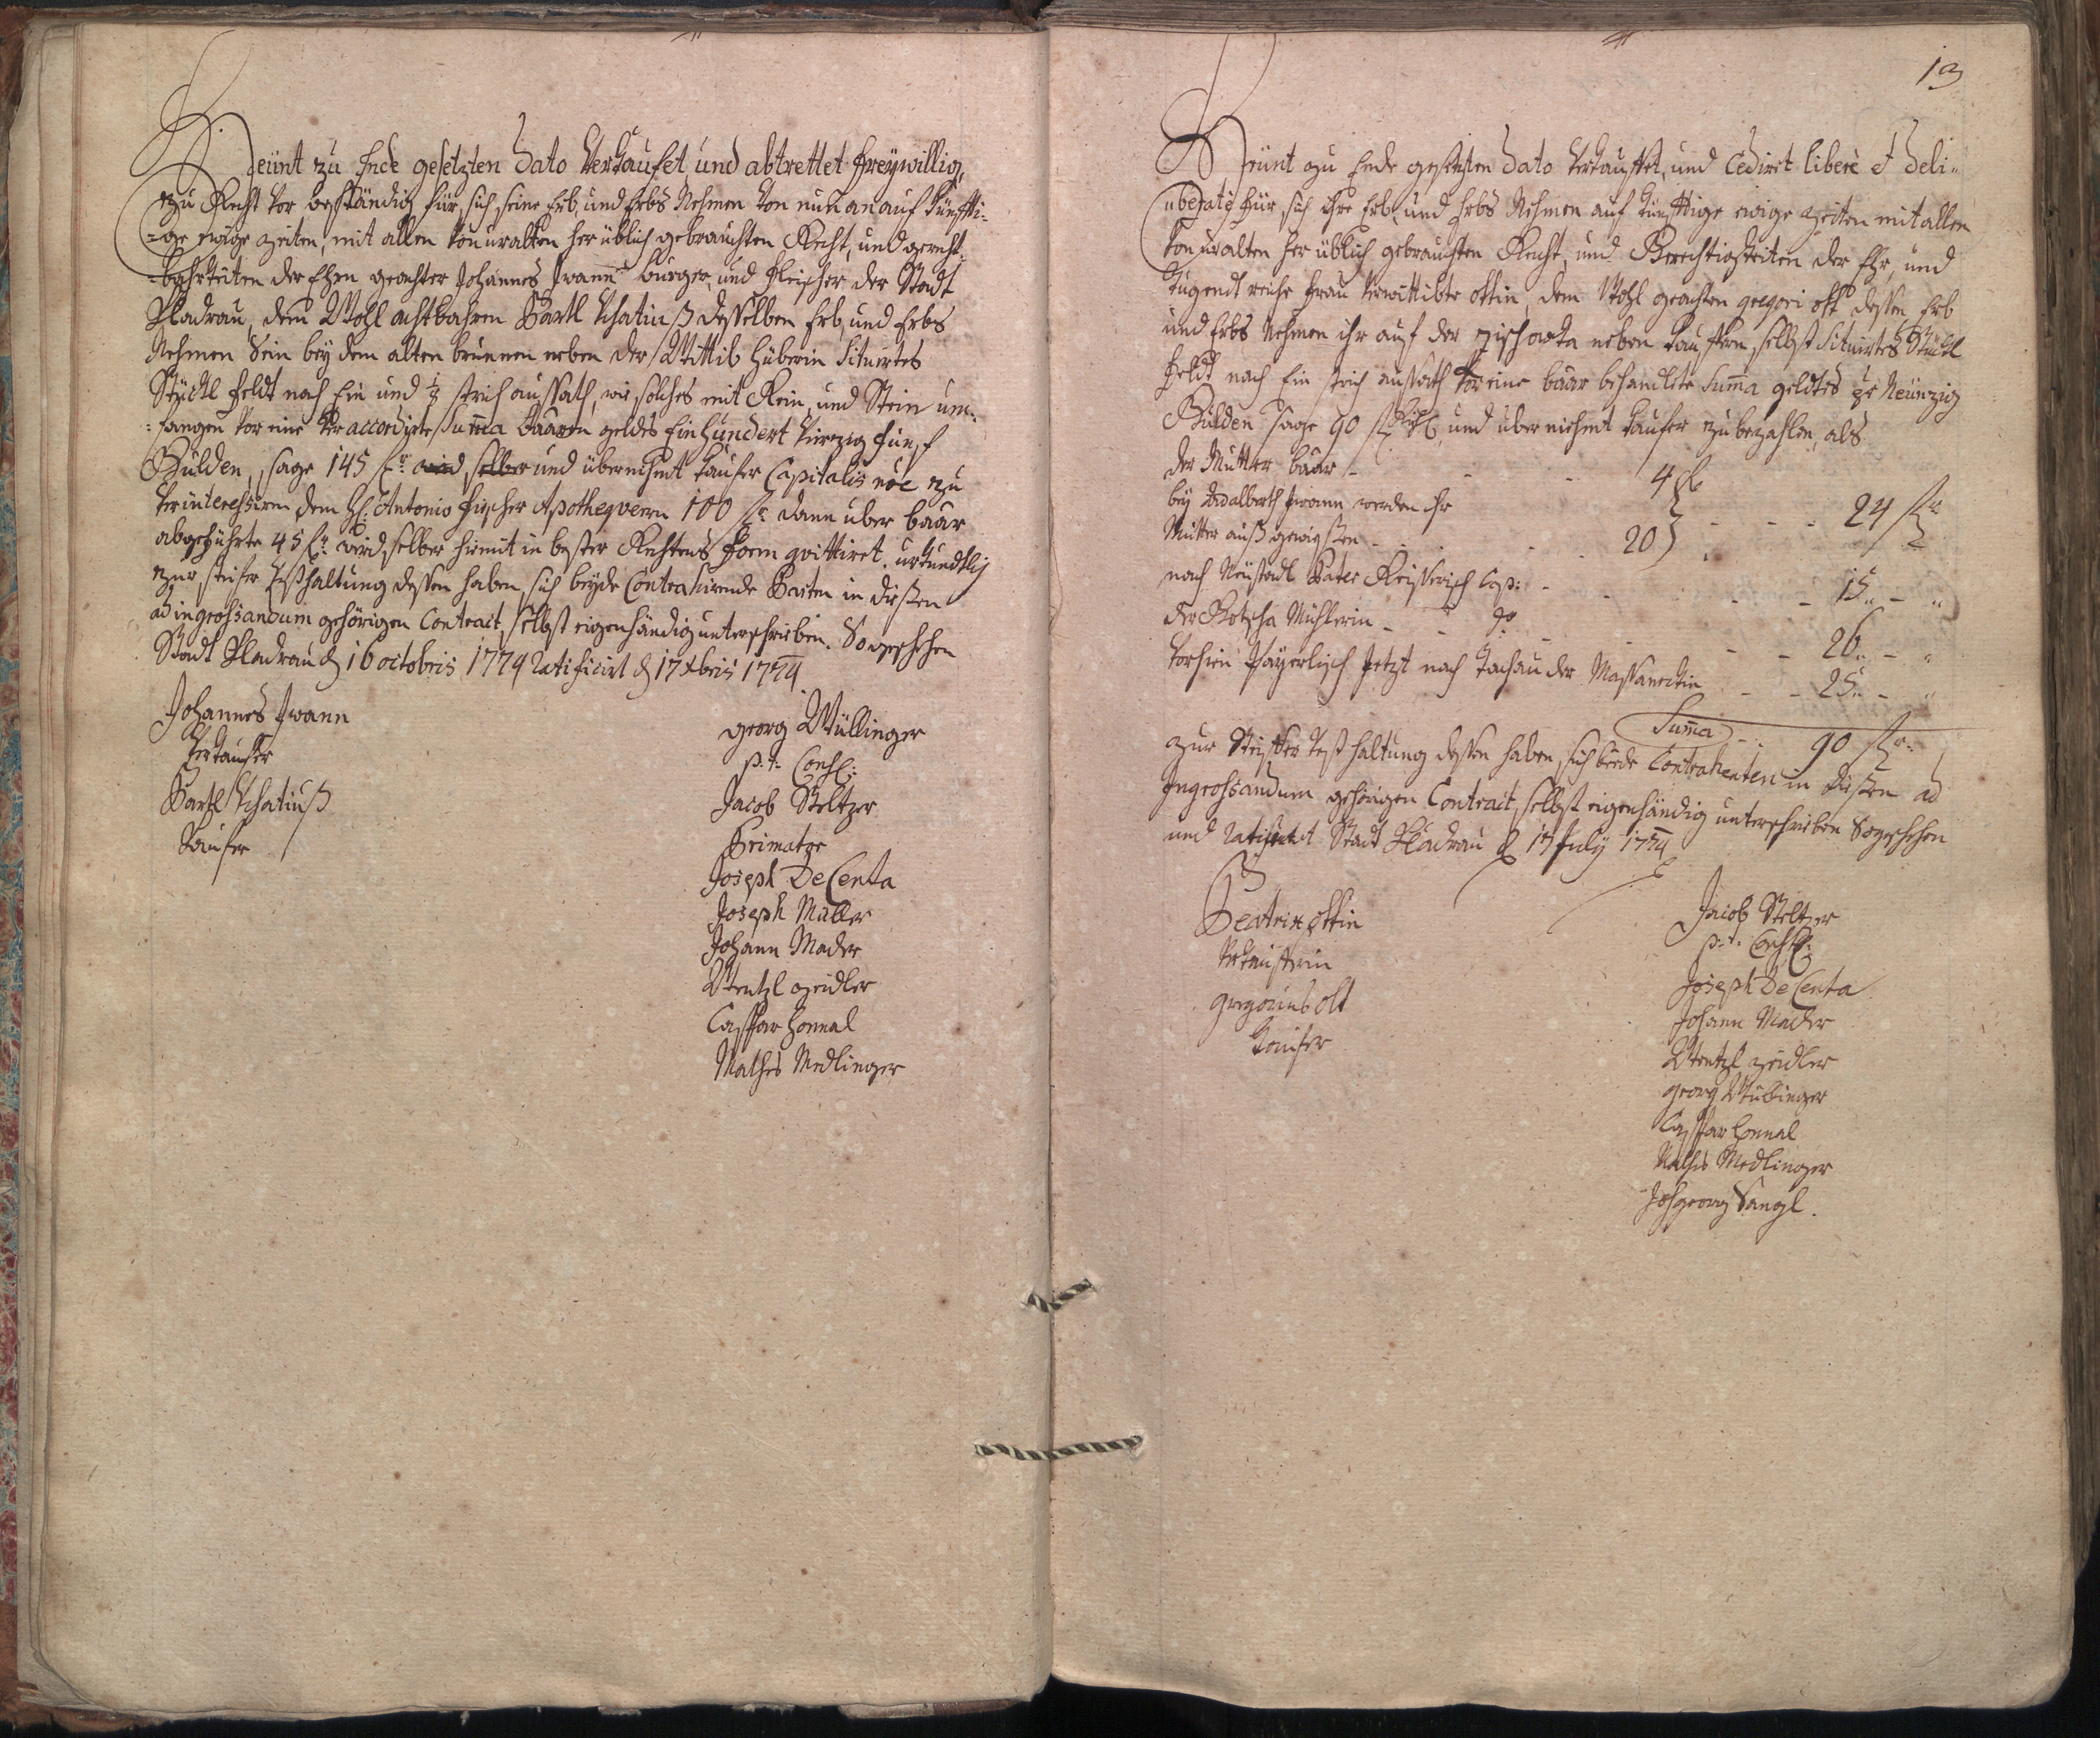 Heünt zu Ende gesetzten Dato Verkaufet und abtrettet freywillig,
zu Recht vor beständig für sich seine Erb, und Erbs Nehmen von nun an auf künffti-
-ge ewige Zeiten, mit allen von uralten her üblich gebrauchten Recht, und gerecht-
der Ehren geachter Johannes Iwann burger, und Fleischer der Stadt
Kladrau, dem Wohl achtbahren Bartl Schatinß desselben Erb und Erbs
Nehmen Sein bey dem alten brunnen neben der Wittib Huberin Situirtes
Stückl Feldt nach Ein und ½ strich aussath, wie solches mit Rein, und Stein um-
-fangen vor eine veraccordirte Suma Baaren geldes Ein Hundert Vierzig Fünf
Gulden, sage 145 fr: und übernihmt kaufer Capitalis noe zu
verinteressiren dem H: Antonio Fischer Apothequern 100 fr: dann über baar
abgeführte 45 fr: wird selber hiemit in bester Rechtens Form qvittiret. urkundtlich
zur steifer Festhaltung dessen haben sich beyde Contrahirende Parten in dießen
ad ingrossandum gehörigen Contract selbst eigenhändig unterschrieben. So geschehen
Stadt Kladrau d 16 octobris 1774 Ratificirt d 17 Xbris 1774
Johannes Iwann
Verkaufer
Bartl Schatinß
Kaufer
georg Wüllinger
p. t. Cons:
Jacob Steltzer
Primator
Joseph DeCenta
Joseph Müller
Johann Mader
Wentzl Zeidler
Caspar Honnal
Mathes Medlinger
13
Heünt zu Ende gesetzten Dato verkauffet, und Cediret libere et deli-
uberate für sich ihre Erb, und Erbs Nehmen auf künfftige ewige Zeiten mit allen
von uralten her üblich gebrauchten Recht, und Gerechtigkeiten der Ehr, und
Tugendt reiche Frau verwittibte Ottin, dem Wohl geachten gregori Ott dessen Erb
und Erbs Nehmen ihr auf der neben Kauffern selbst Situirtes Stückl
Feldt nach Ein strich aussath vor eine baar behandlete Suma geldtes pr Neünzig
Gulden sage 90 fr und übernihmt kaufer zu bezahlen, als
der Mutter baar - - - 4 fl
bey Adalberth Iwann werden ihr
Mutter auß gewießen - - - 20 } - - - 24 fr
nach Neüstadl Pater Cap: - - - 15 „ - „
der Kotzka Mühlerin - - do - - - 26 „ - „
vorhien Payerlisch jetzt nach Tachau der - - 25 „ - „
Suma - 90 fr:
zur Steiffer Festhaltung dessen haben sich beede Contrahenten in dießen ad
Ingrossandum gehörigen Contract selbst eigenhändig unterschrieben So geschehen
und Ratificirt Stadt Kladrau d 17 July 1774
Beatrix Ottin
Verkaufferin
Gregorius Ott
Kaufer
Jacob Steltzer
p. t. Cons:
Joseph DeCenta
Johann Mader
Wentzl Zeidler
georg Wüllinger
Caspar Honnal
Mathes Medlinger
Joh georg Sangl.